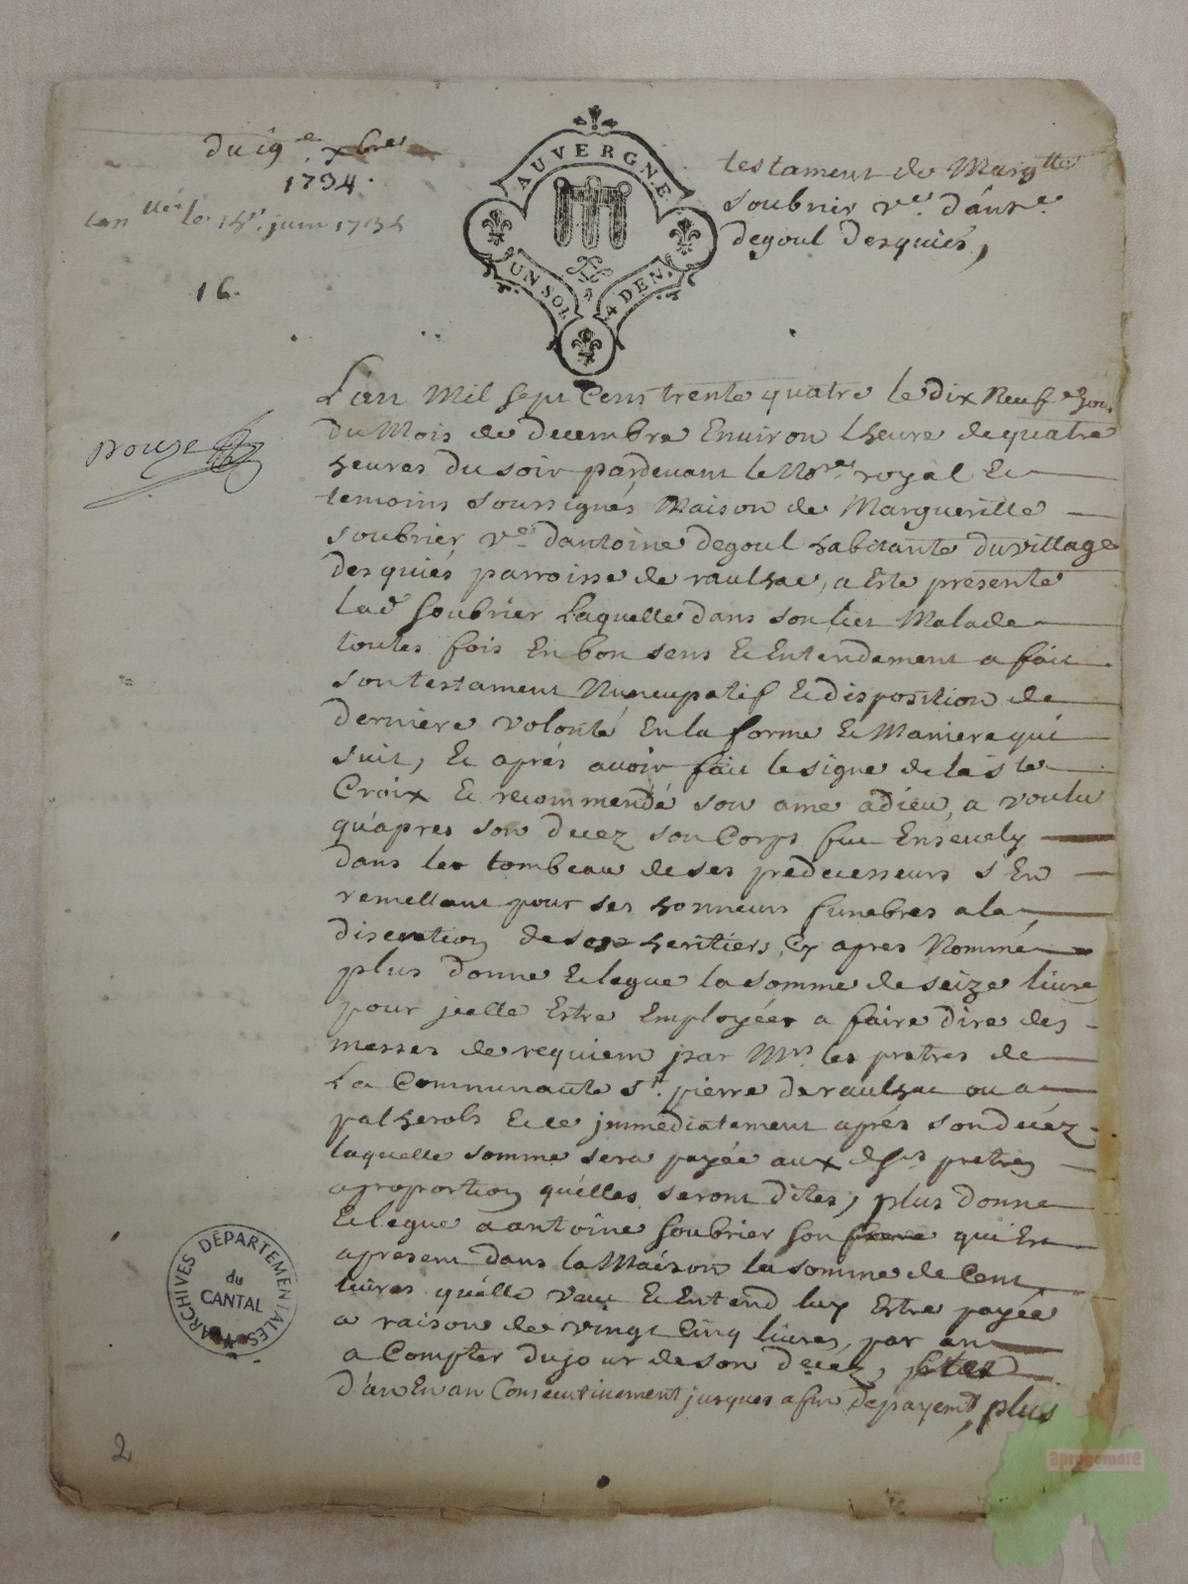 du 19e xbre
1734.
le 15e juin 1735
16.
AUVERGNE
UN SOL 4 DEN.
testament de Margtte
soubrier ve. d'ante.
degoul desquiés,
L'an Mil sept Cens trente quatre le dix Neufe Jour
du Mois de decembre Environ Lheure de quatre
heures du soir pardevant le Nore royal Et
temoins soussignés Maison de Margueritte
soubrier ve dantoine degoul habitante du village
desquiés parroisse de raulhac, a Esté presente
lad soubrier Laquelle dans son lict Malade
toutes fois En bon sens Et Entendement a fait
son testament Nuncupatif Et disposition de
derniere volonté En la forme Et Maniere qui
suit, Et aprés avoir fait le signe de la ste
Croix Et recommendé son ame a dieu, a voulu
qu'apres son decez son Corps fut Ensevely
dans les tombeau de ses predecesseurs s'En
remettant pour ses honneurs funebres a la
discretion de ses heritiers Cy apres Nommé
plus donne Et legue la somme de seize livre
pour jcelle Estre Employéer a faire dire des
messes de requiem par Mrs les pretres de
La Communauté St. pierre de raulhac ou a
palherols Et ce jmmediatement aprés son decéz
laquelle somme sera payée aux dts pretres
a proportion qu'elles seront dites, plus donne
Et legue a antoine soubrier son frere qui Est
a present dans la Maison la somme de Cent
livres qu'elle veut Et Entend luy Estre payée
a raison de vingt Cinq livres par an
a Compter du jour de son decéz,
d'an En an Consecutivement jusques a fin de payemt, plus
ARCHIVES DÉPARTEMENTALES
du
CANTAL
2
aprogemere